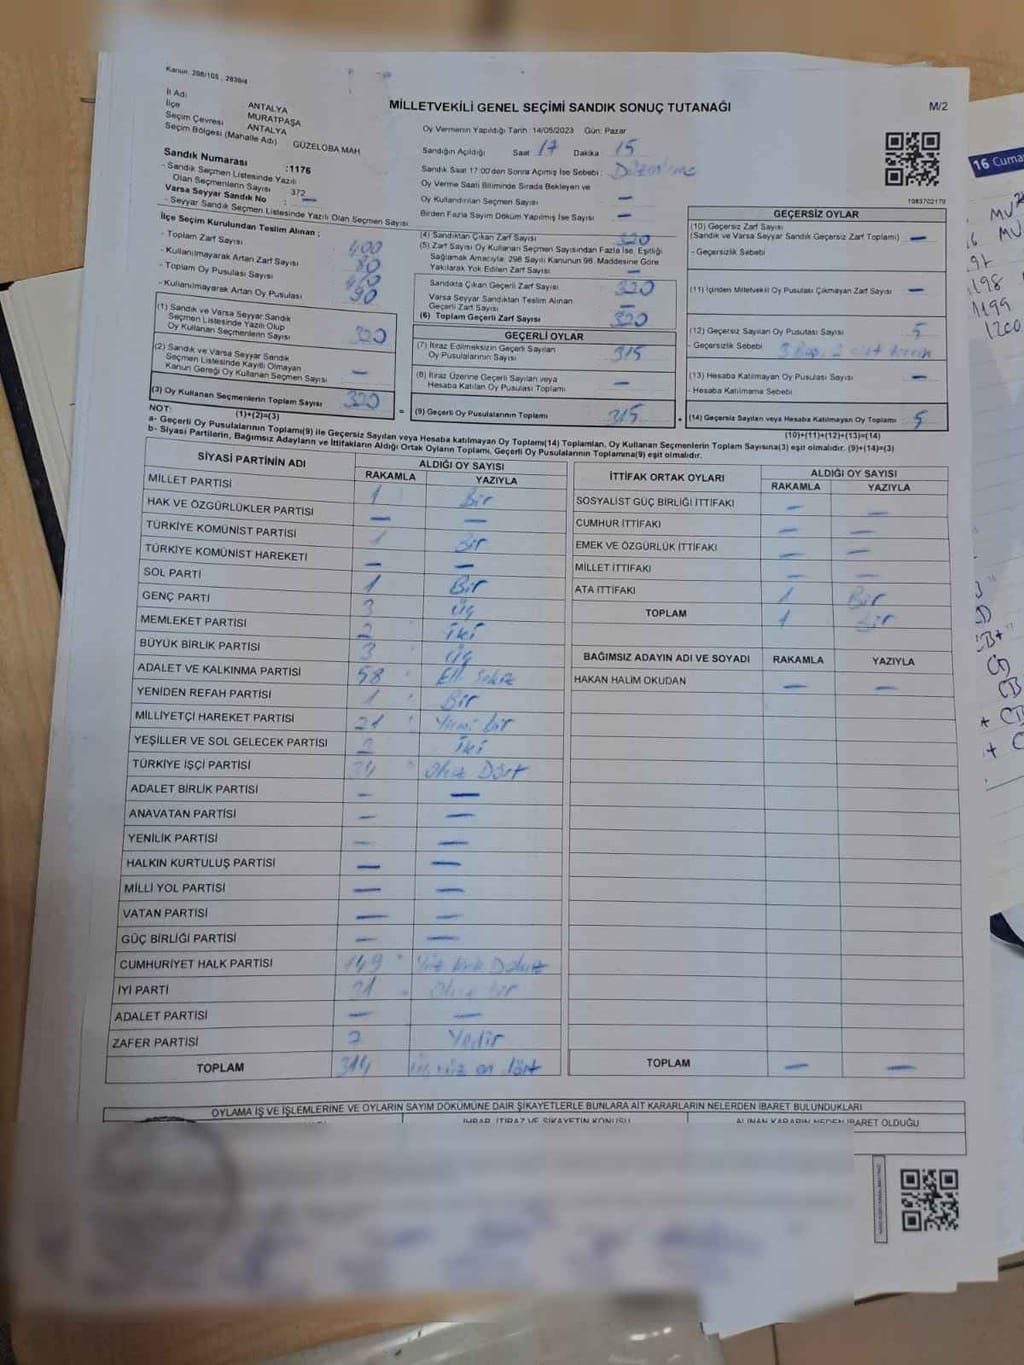 Kanun: 298/105 , 2839/4
MİLLETVEKİLİ GENEL SEÇİMİ SANDIK SONUÇ TUTANAĞI
M/2
İl Adı ANTALYA
İlçe MURATPAŞA
Seçim Çevresi ANTALYA
Seçim Bölgesi (Mahalle Adı) GÜZELOBA MAH
Sandık Numarası :1176
- Sandık Seçmen Listesinde Yazılı
Olan Seçmenlerin Sayısı 372
Varsa Seyyar Sandık No : –
- Seyyar Sandık Seçmen Listesinde Yazılı Olan Seçmen Sayısı
Oy Vermenin Yapıldığı Tarih: 14/05/2023 Gün: Pazar
Sandığın Açıldığı Saat 17 Dakika 15
Sandık Saat 17:00'den Sonra Açılmış İse Sebebi : Düzenleme
Oy Verme Saati Bitiminde Sırada Bekleyen ve
Oy Kullandırılan Seçmen Sayısı –
Birden Fazla Sayım Döküm Yapılmış İse Sayısı –
1083702179
İlçe Seçim Kurulundan Teslim Alınan ;
- Toplam Zarf Sayısı 400
- Kullanılmayarak Artan Zarf Sayısı 80
- Toplam Oy Pusulası Sayısı
- Kullanılmayarak Artan Oy Pusulası 90
(1) Sandık ve Varsa Seyyar Sandık
Seçmen Listesinde Yazılı Olup
Oy Kullanan Seçmenlerin Sayısı 320
(2) Sandık ve Varsa Seyyar Sandık
Seçmen Listesinde Kayıtlı Olmayan
Kanun Gereği Oy Kullanan Seçmen Sayısı –
(3) Oy Kullanan Seçmenlerin Toplam Sayısı 320
(1)+(2)=(3)
(4) Sandıktan Çıkan Zarf Sayısı 320
(5) Zarf Sayısı Oy Kullanan Seçmen Sayısından Fazla İse, Eşitliği
Sağlamak Amacıyla; 298 Sayılı Kanunun 98. Maddesine Göre
Yakılarak Yok Edilen Zarf Sayısı –
Sandıkta Çıkan Geçerli Zarf Sayısı 320
Varsa Seyyar Sandıktan Teslim Alınan
Geçerli Zarf Sayısı –
(6) Toplam Geçerli Zarf Sayısı 320
GEÇERLİ OYLAR
(7) İtiraz Edilmeksizin Geçerli Sayılan
Oy Pusulalarının Sayısı 315
(8) İtiraz Üzerine Geçerli Sayılan veya
Hesaba Katılan Oy Pusulası Toplamı –
= (9) Geçerli Oy Pusulalarının Toplamı 315
GEÇERSİZ OYLAR
(10) Geçersiz Zarf Sayısı
(Sandık ve Varsa Seyyar Sandık Geçersiz Zarf Toplamı) –
- Geçersizlik Sebebi
(11) İçinden Milletvekili Oy Pusulası Çıkmayan Zarf Sayısı –
(12) Geçersiz Sayılan Oy Pusulası Sayısı 5
- Geçersizlik Sebebi
(13) Hesaba Katılmayan Oy Pusulası Sayısı –
- Hesaba Katılmama Sebebi
+ (14) Geçersiz Sayılan veya Hesaba Katılmayan Oy Toplamı 5
(10)+(11)+(12)+(13)=(14)
NOT:
a- Geçerli Oy Pusulalarının Toplamı(9) ile Geçersiz Sayılan veya Hesaba katılmayan Oy Toplamı(14) Toplamları, Oy Kullanan Seçmenlerin Toplam Sayısına(3) eşit olmalıdır. (9)+(14)=(3)
b- Siyasi Partilerin, Bağımsız Adayların ve İttifakların Aldığı Ortak Oyların Toplamı, Geçerli Oy Pusulalarının Toplamına(9) eşit olmalıdır.
SİYASİ PARTİNİN ADI ALDIĞI OY SAYISI
RAKAMLA YAZIYLA
MİLLET PARTİSİ 1 Bir
HAK VE ÖZGÜRLÜKLER PARTİSİ – –
TÜRKİYE KOMÜNİST PARTİSİ 1 Bir
TÜRKİYE KOMÜNİST HAREKETİ – –
SOL PARTİ 1 Bir
GENÇ PARTİ 3 Üç
MEMLEKET PARTİSİ 2 İki
BÜYÜK BİRLİK PARTİSİ 3 Üç
ADALET VE KALKINMA PARTİSİ 58 Elli Sekiz
YENİDEN REFAH PARTİSİ 1 Bir
MİLLİYETÇİ HAREKET PARTİSİ 21 Yirmi bir
YEŞİLLER VE SOL GELECEK PARTİSİ 2 İki
TÜRKİYE İŞÇİ PARTİSİ 34 Otuz Dört
ADALET BİRLİK PARTİSİ – –
ANAVATAN PARTİSİ – –
YENİLİK PARTİSİ – –
HALKIN KURTULUŞ PARTİSİ – –
MİLLİ YOL PARTİSİ – –
VATAN PARTİSİ – –
GÜÇ BİRLİĞİ PARTİSİ – –
CUMHURİYET HALK PARTİSİ 149 Yüz Kırk Dokuz
İYİ PARTİ 31 Otuz bir
ADALET PARTİSİ – –
ZAFER PARTİSİ 7 Yedi
TOPLAM 314 Üç yüz on dört
İTTİFAK ORTAK OYLARI ALDIĞI OY SAYISI
RAKAMLA YAZIYLA
SOSYALİST GÜÇ BİRLİĞİ İTTİFAKI – –
CUMHUR İTTİFAKI – –
EMEK VE ÖZGÜRLÜK İTTİFAKI – –
MİLLET İTTİFAKI – –
ATA İTTİFAKI 1 Bir
TOPLAM 1 Bir
BAĞIMSIZ ADAYIN ADI VE SOYADI RAKAMLA YAZIYLA
HAKAN HALİM OKUDAN – –
TOPLAM – –
OYLAMA İŞ VE İŞLEMLERİNE VE OYLARIN SAYIM DÖKÜMÜNE DAİR ŞİKAYETLERLE BUNLARA AİT KARARLARIN NELERDEN İBARET BULUNDUKLARI
İHBAR, İTİRAZ VE ŞİKAYETİN KONUSU ALINAN KARARIN NEDEN İBARET OLDUĞU
16 Cuma
1199
1200